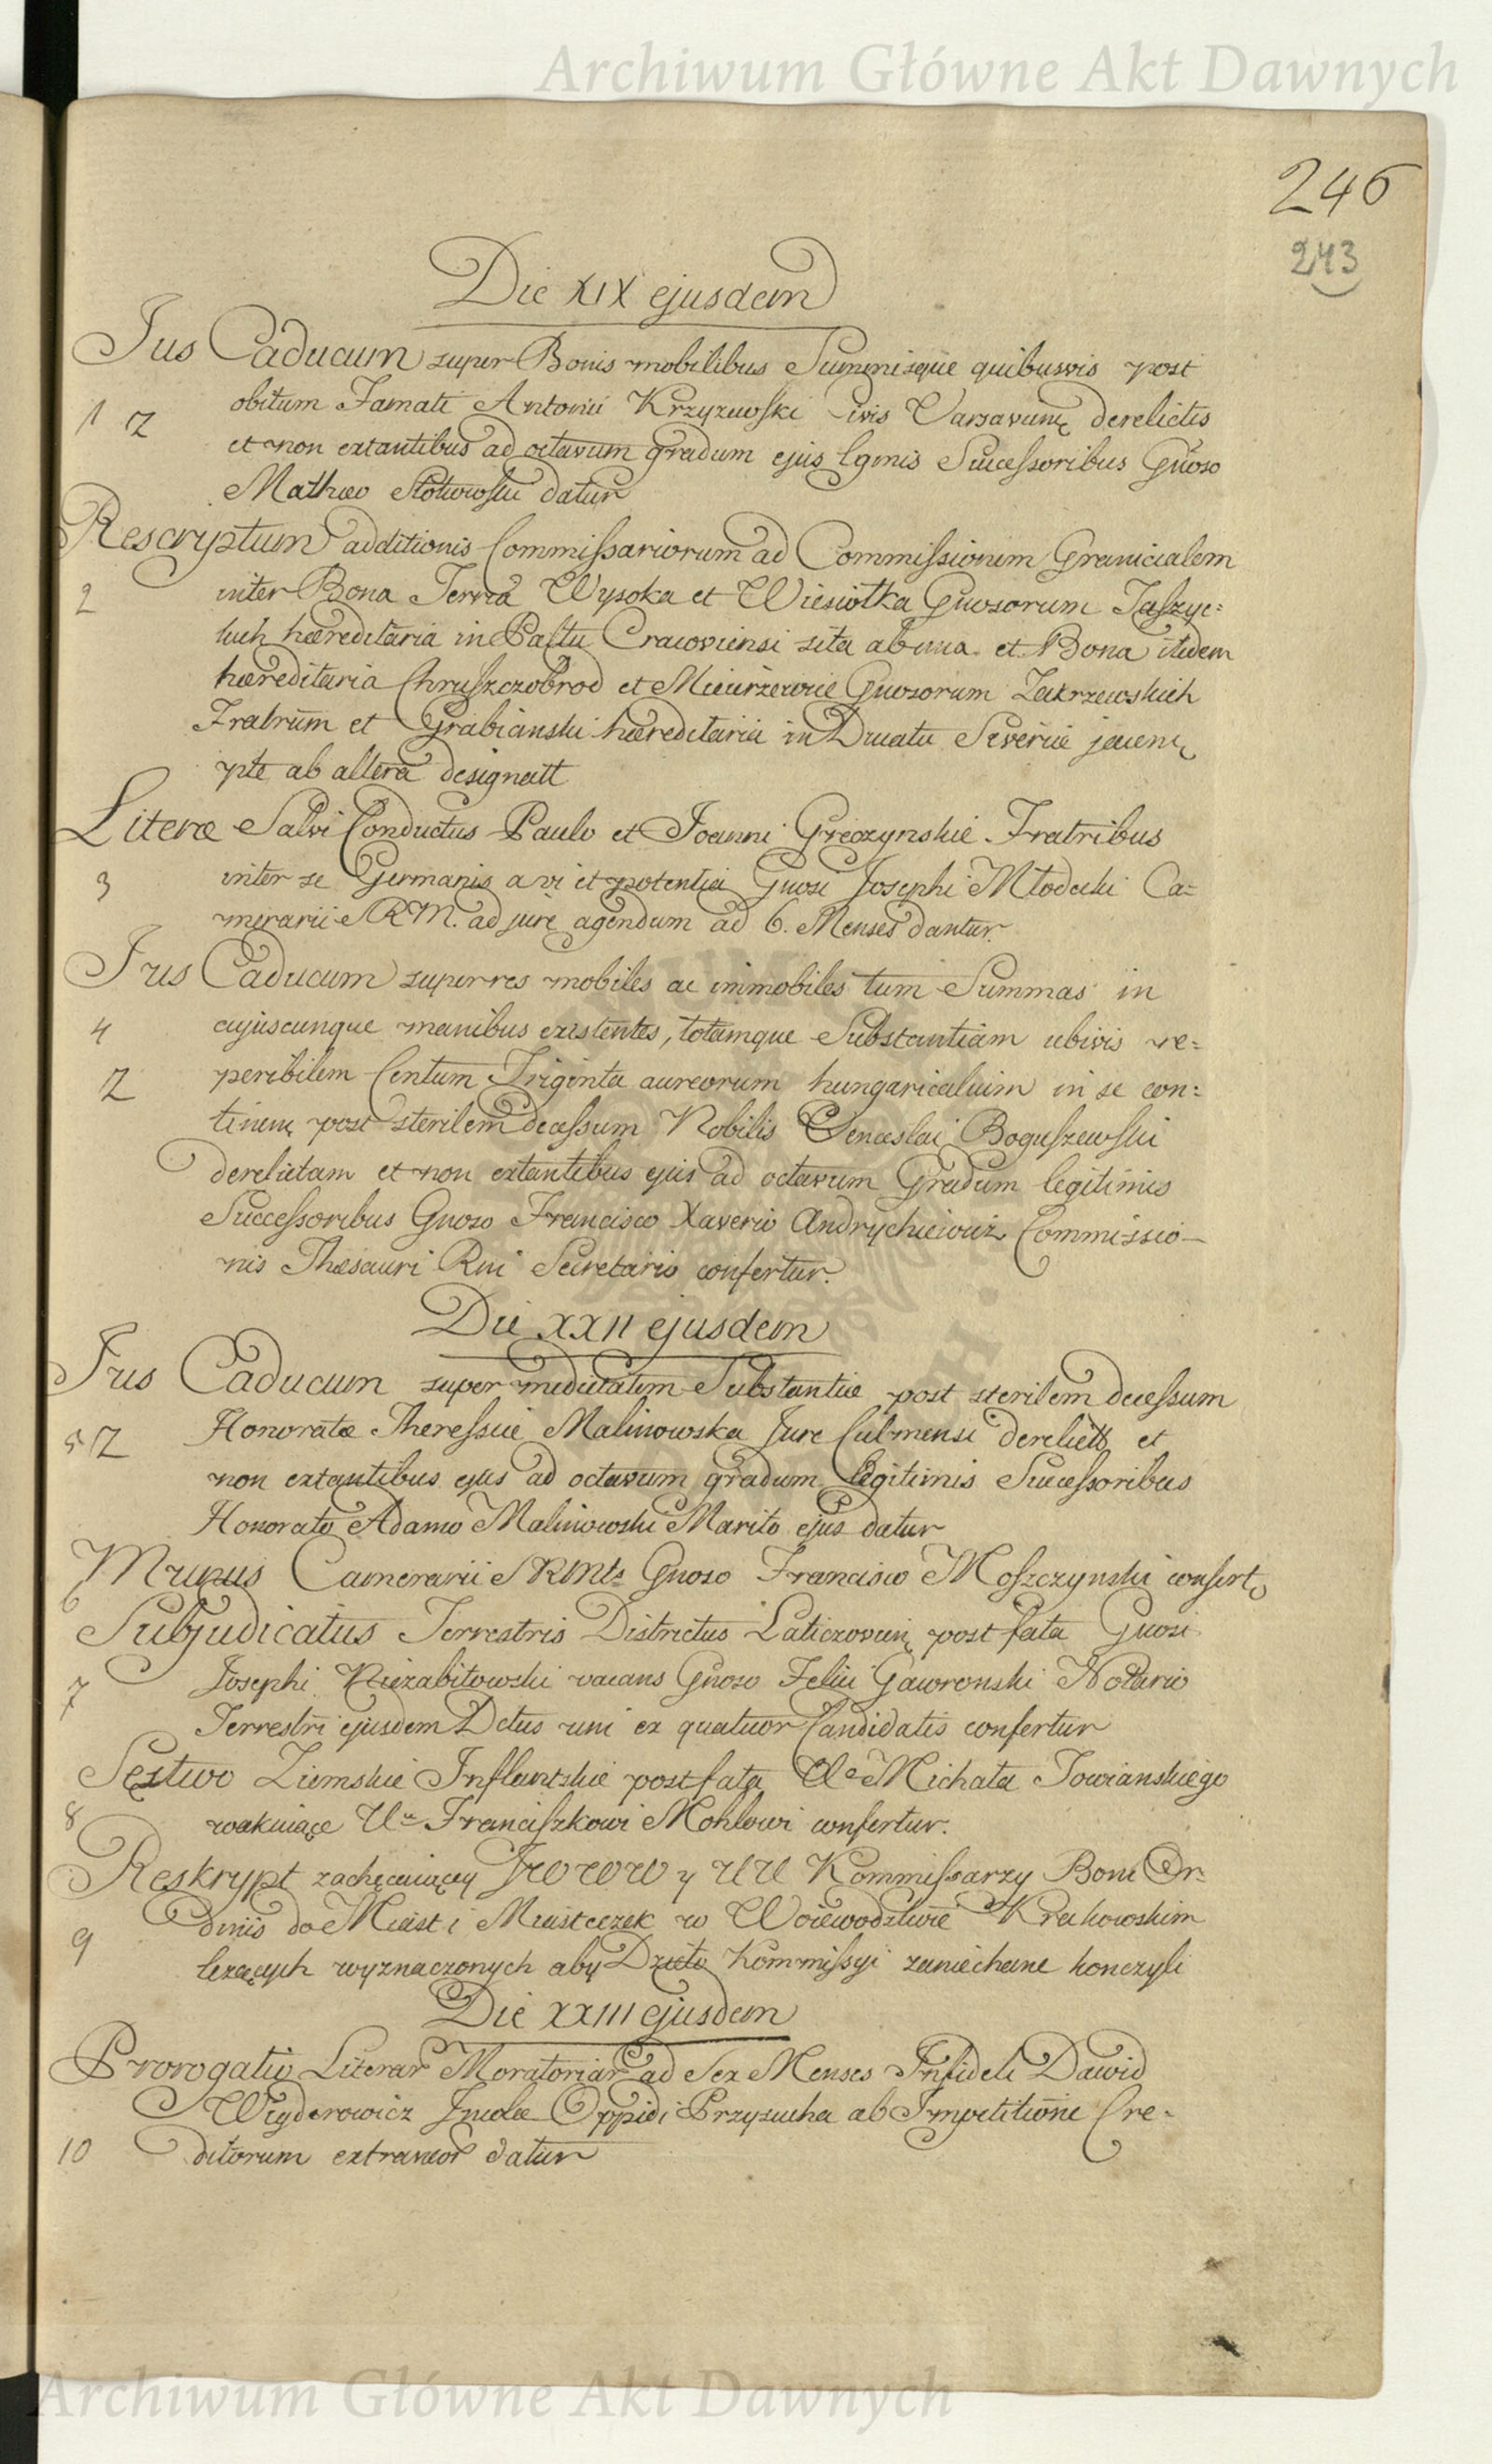 Archiwum Główne Akt Dawnych
246
243
Die XIX ejusdem
Jus Caducum super Bonis mobilibus Summisque quibusvis post
1 Z obitum Famati Antonii Krzyzewski Civis Varsavien̄ derelictis
et non extantibus ad octavum gradum ejus lgmis Successoribus Gnoso
Mathæo datur
Rescryptum additionis Commissariorum ad Commissionem Granicialem
2 inter Bona Terra Wysoka et Wiesiołka Gnosorum Jaszyc=
kich hæreditaria in Pałtu Cracoviensi sita ab una et Bona itidem
hæreditaria Chruszczobrod et Gnosorum Zakrzewskich
Fratrum et Grabianski hæreditaria in Ducatu Severiæ jacen̄
pte ab altera designatt
Literæ Salvi Conductus Paulo et Joanni Fratribus
3 inter se Germanis a vi et potentia Gnosi Josephi Młodecki Ca=
merarii SRM. ad jure agendum ad 6. Menses dantur.
Jus Caducum super res mobiles ac immobiles tum Summas in
4 cujuscunque manibus existentes, totamque Substantiam ubivis re=
Z peribilem Centum Triginta aureorum hungaricalium in se con=
tinen̄ post sterilem decessum Nobilis Venceslai Boguszewski
derelictam et non extantibus ejus ad octavum Gradum legitimis
Successoribus Gnoso Francisco Xaverio Andrychiewicz Commissio-
nis Thesauri Rni Secretario confertur.
Die XXII ejusdem
Jus Caducum super medietatem Substantiæ post sterilem decessum
5 Z Honoratæ Theressiæ Malinowska Jure Culmensi derelictt et
non extantibus ejus ad octavum gradum legitimis Successoribus
Honorato Adamo Malinowski Marito ejus datur
Munus Camerarii SRMts Gnoso Francisco Moszczynski confert
6
Subjudicatus Terrestris Districtus Laticzovien̄ post fata Gnosi
7 Josephi Niezabitowski vacans Gnoso Felici Gawronski Notario
Terrestri ejusdem Dctus uni ex quatuor Candidatis confertur
Sęstwo Ziemskie Inflantskie post fata Ugo Michała Towianskiego
8 wakuiące Uu Franciszkowi Mohlowi confertur.
Reskrypt zachęcaiący JWWW y UU Kommissarzy Boni Or=
9 dinis do Miast i Miasteczek w Woiewodztwie Krakowskim
leżących wyznaczonych aby Dzieło Kommissyi zaniechane konczyli
Die XXIII ejusdem
Prorogatio Literar Moratoriar ad Sex Menses Infideli Dawid
Wigderowicz Incolæ Oppidi Przysucha ab Impetitione Cre=
10 ditorum extraneor datur
Archiwum Główne Akt Dawnych